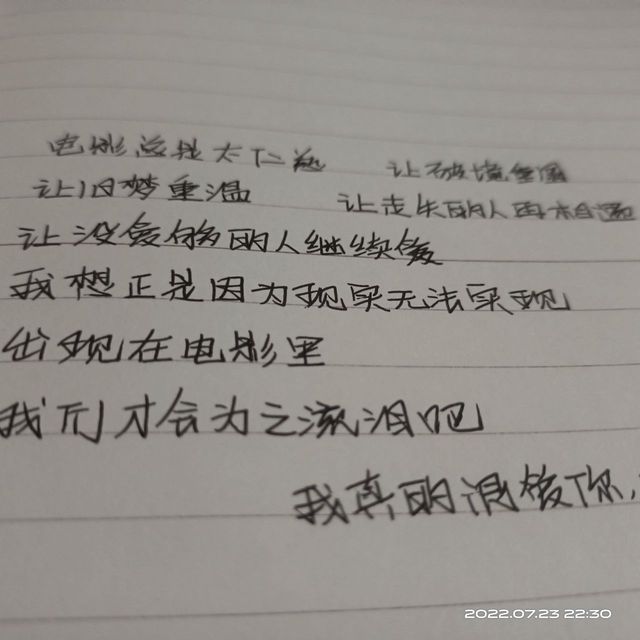 电影总是太仁慈 让破镜重圆
让旧梦重温 让走失的人再相遇
让没爱够的人继续爱
我想正是因为现实无法实现
出现在电影里
我们才会为之流泪吧
我真的很爱你，
2022.07.23 22:30